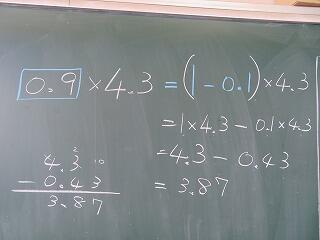 0.9 × 4.3 = (1 - 0.1) × 4.3
= 1 × 4.3 - 0.1 × 4.3
= 4.3 - 0.43
= 3.87
2 10
4.3
- 0.43
3.87